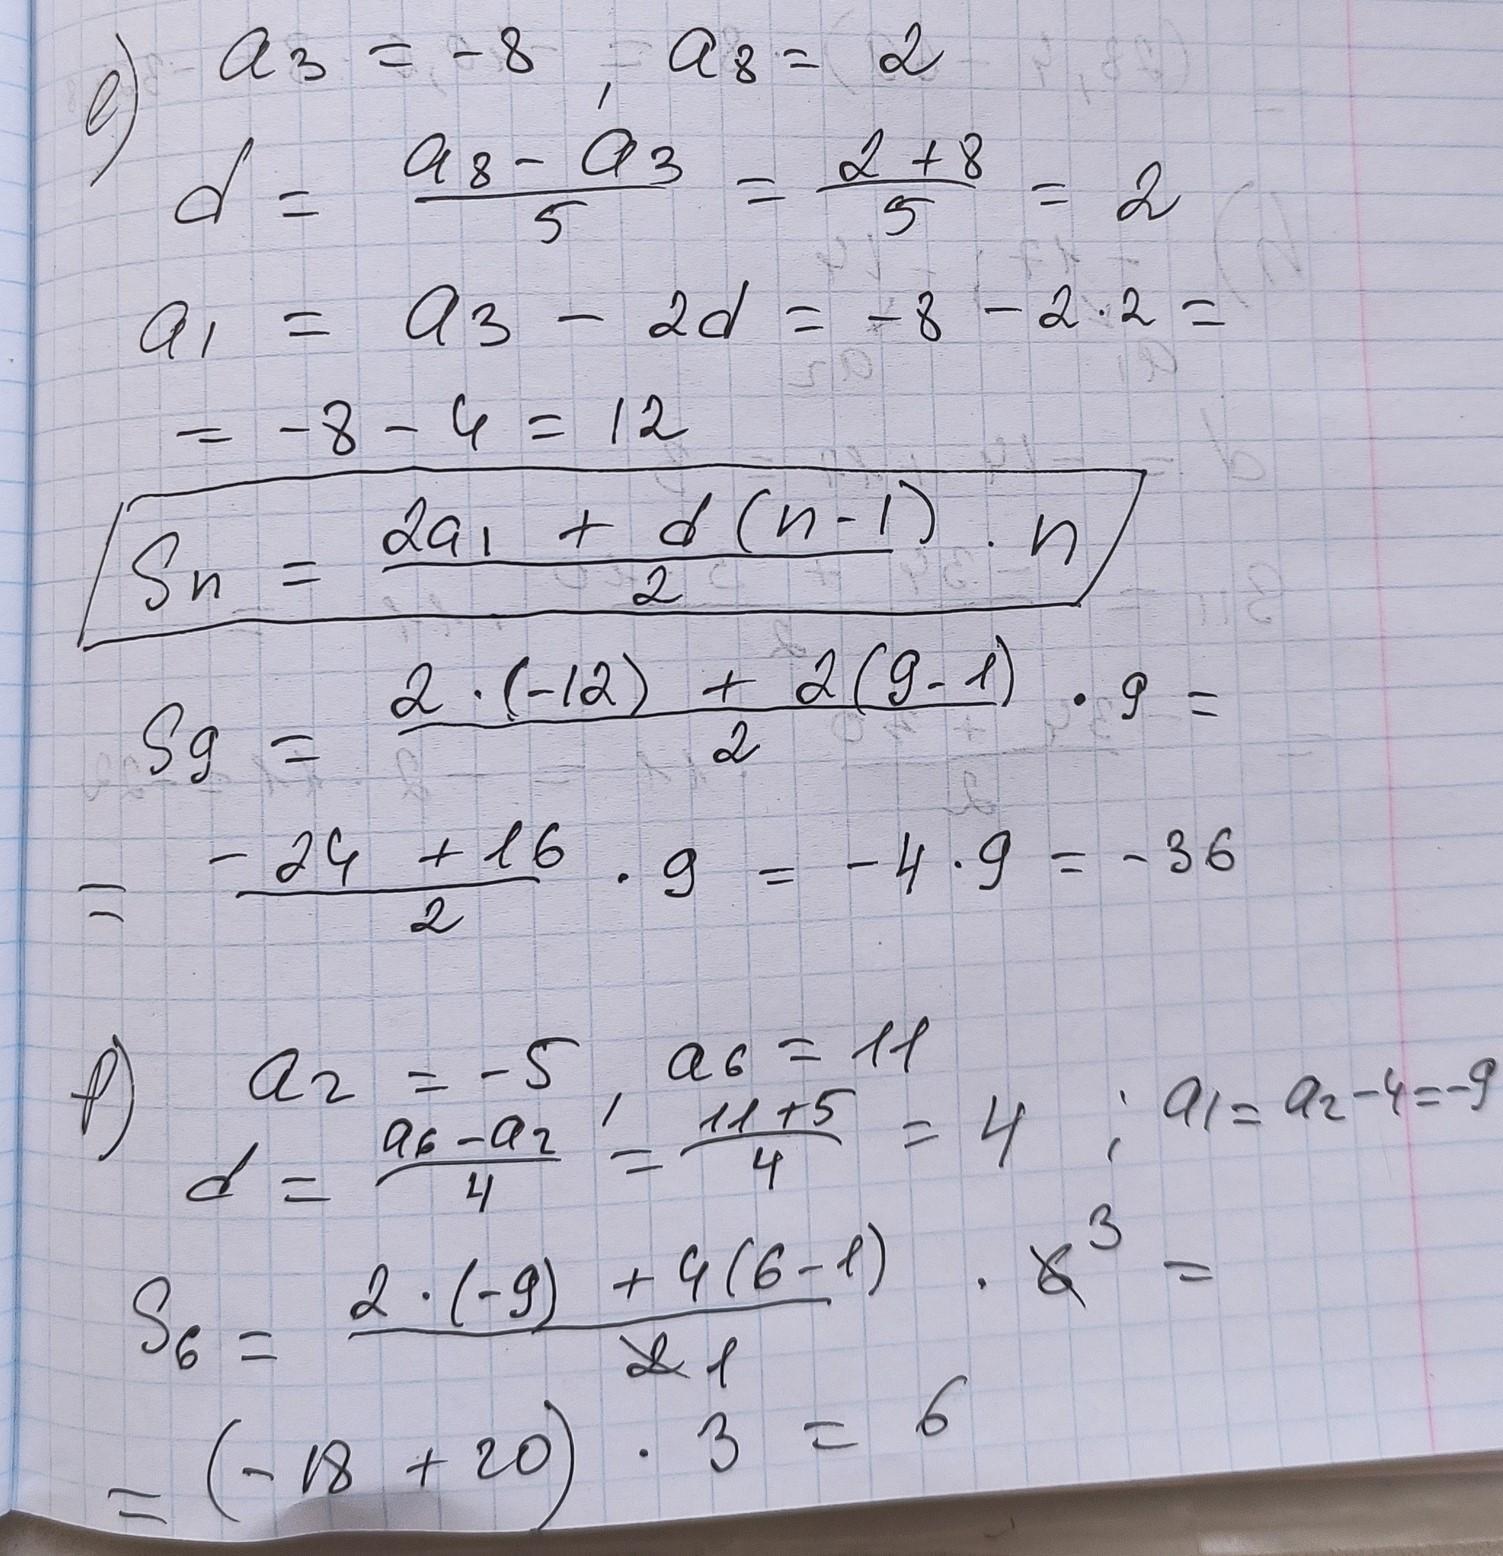 e) a3 = -8, a8 = 2
d = (a8 - a3)/5 = (2 + 8)/5 = 2
a1 = a3 - 2d = -8 - 2·2 =
= -8 - 4 = 12
Sn = (2a1 + d(n-1))/2 · n
S9 = (2·(-12) + 2(9-1))/2 · 9 =
= (-24 + 16)/2 · 9 = -4·9 = -36
f) a2 = -5, a6 = 11
d = (a6 - a2)/4 = (11+5)/4 = 4 ; a1 = a2 - 4 = -9
S6 = (2·(-9) + 4(6-1))/2 1 · 6 3 =
= (-18 + 20) · 3 = 6